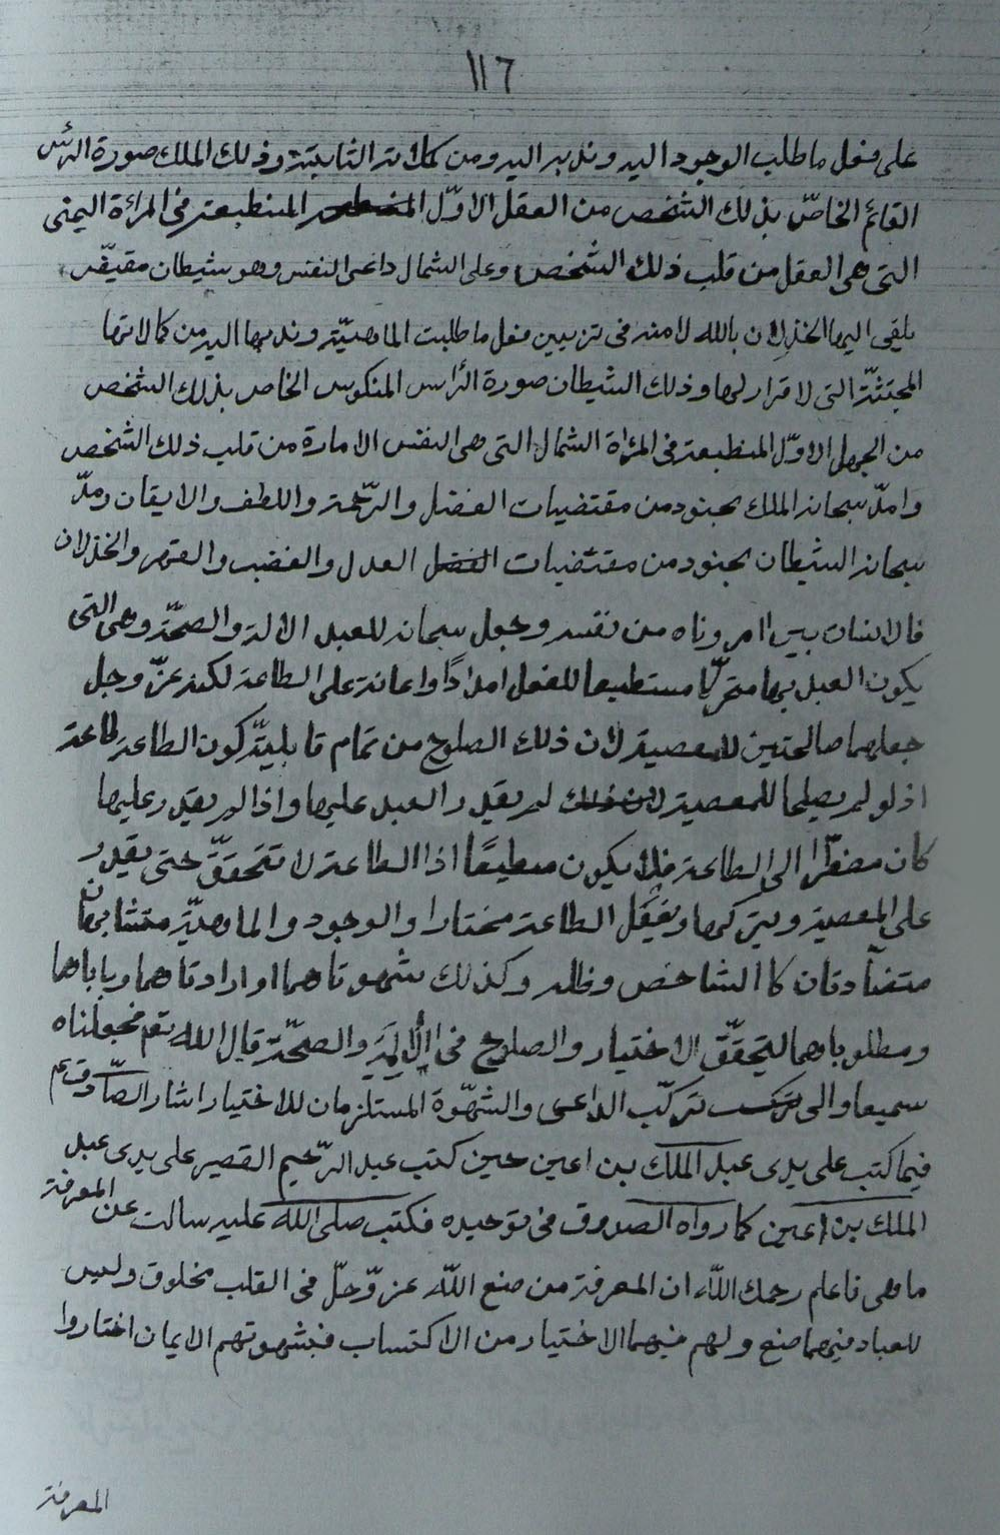 ١١٦
على فعل ما طلب الوجود اليه وندبه اليه ومن كمالاته الثابتة وذلك الملك صورة الرأس
القائم الخاصّ بذلك الشخص من العقل الاوّل المنطبعة فى المرءاة اليمنى
التى هى العقل من قلب ذلك الشخص وعلى الشمال داعى النفس وهو شيطان مقيّض
يلقى اليها الخذلان بالله لا منه فى تزيين فعل ما طلبت الماهيّة وندبها اليه من كمالاتها
المجتثّة التى لا قرار لها وذلك الشيطان صورة الرّأس المنكوس الخاص بذلك الشخص
من الجهل الاوّل المنطبعة فى المرءاة الشمال التى هى النفس الامارة من قلب ذلك الشخص
وامدّ سبحانه الملك بجنود من مقتضيات الفضل والرّحمة واللطف والايقان ومدّ
سبحانه الشيطان بجنود من مقتضيات العدل والغضب والقهر والخذلان
فالانسان بين امرين من نفسه وجعل سبحانه للعبد الالة والصحّة وهى التى
يكون العبد بها متحرّكا مستطيعا للفعل امدادًا واعانة على الطاعة لكنه عزّ وجل
جعلهما صالحتين للمعصية لان ذلك الصلوح من تمام قابليّة كون الطاعة طاعة
اذ لو لم يصلحا للمعصية لم يقدر العبد عليها واذا لم يقدر عليها
كان مضطرّا الى الطاعة فلا يكون مطيعًا اذ الطاعة لا تتحقّق حتى يقدر
على المعصية ويتركها ويفعل الطاعة مختارا والوجود والماهيّة متشابهان
متضآدتان كالشاخص وظله وكذلك شهوتاهما او ارادتاهما وباباهما
ومطلوباهما ليتحقّق الاختيار والصلوح فى الالة والصحّة قال الله تعم فجعلناه
سميعا والى تركّب الداعى والشهوّة المستلزمان للاختيار اشار الصّادق عم
فيما كتب على يدى عبد الملك بن اعين حين كتب عبد الرّحيم القصير على يدى عبد
الملك بن اعين كما رواه الصدوق فى توحيده فكتب صلى الله عليه سالت عن المعرفة
ما هى فاعلم رحمك اللّه ان المعرفة من صنع اللّه عز وّجلّ فى القلب مخلوق وليس
للعباد فيهما صنع ولهم فيهما الاختيار من الاكتساب فبشهوتهم الايمان اختاروا
المعرفة